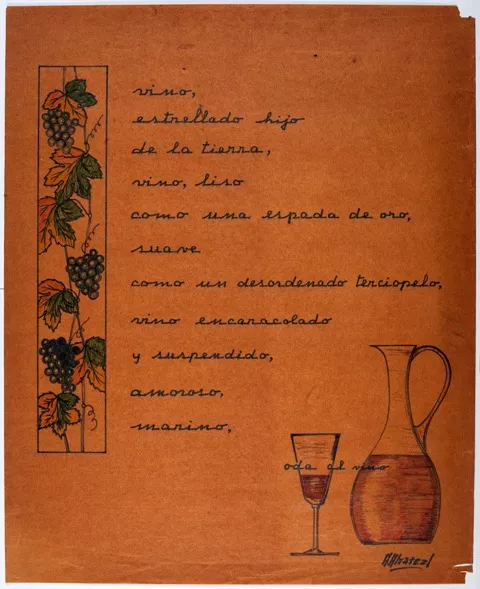 vino,
estrellado hijo
de la tierra,
vino, liso
como una espada de oro,
suave
como un desordenado terciopelo,
vino encaracolado
y suspendido,
amoroso,
marino,
oda al vino